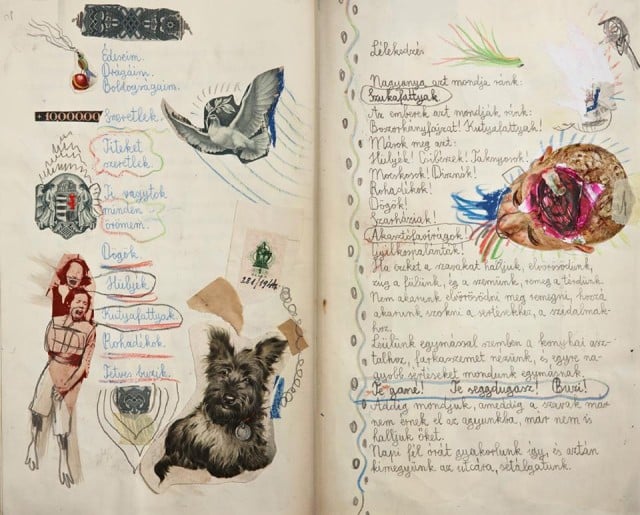 Édeseim.
Drágáim.
Boldogságaim.
1000000 Szeretlek.
Titeket
szeretlek.
Ti vagytok
minden
örömem.
Dögök
Hülyék
Kutyafattyak.
Rohadékok.
Tetves buzik.
Lélekedzés
Nagyanya azt mondja ránk:
Szukafattyak
Az emberek azt mondják ránk:
Boszorkányfajzat! Kutyafattyak!
Mások meg azt:
Hülyék! Csibészek! Taknyosok!
Mocskosok! Disznók!
Rohadékok!
Dögök!
Szarháziak!
Akasztófavirágok!
Gyilkospalánták!
Ha ezeket a szavakat halljuk, elvörösödünk,
zúg a fülünk, ég a szemünk, remeg a térdünk.
Nem akarunk elvörösödni meg remegni, hozzá
akarunk szokni a sértésekhez, a szidalmak-
hoz.
Leülünk egymással szemben a konyhai asz-
talhoz, farkasszemet nézünk, és egyre na-
gyobb sértéseket mondunk egymásnak.
Te gané! Te seggdugasz! Buzi!
Addig mondjuk, ameddig a szavak már
nem érnek el az agyunkba, már nem is
halljuk őket.
Napi fél órát gyakorlunk így, és aztán
kimegyünk az utcára, sétálgatunk.